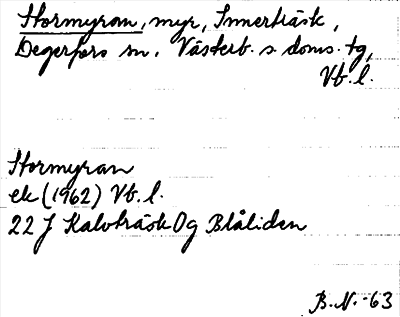 Stormyran, myr, Innerträsk,
Degerfors sn. Västerb. s. doms. tg,
Vb. l.
Stormyran
ek (1962) Vb. l.
22 J Kalvträsk Og Blåliden
B.N. -63